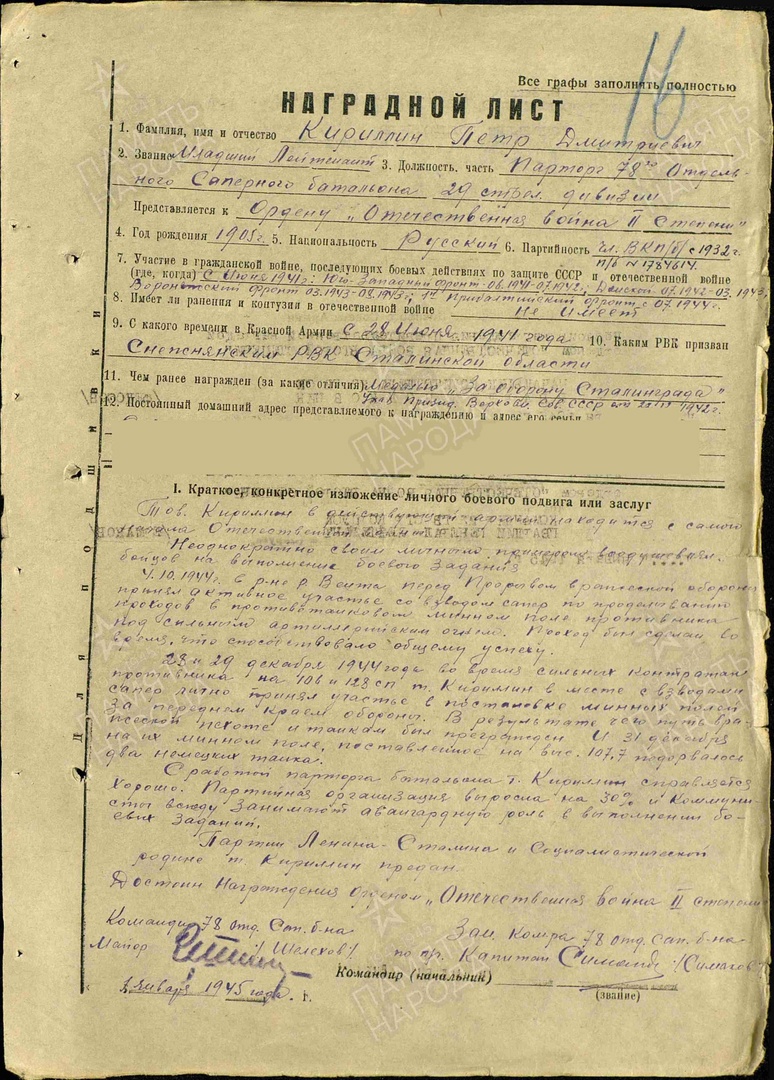 16
Все графы заполнять полностью
НАГРАДНОЙ ЛИСТ
1. Фамилия, имя и отчество Кириллин Петр Дмитриевич
2. Звание Младший Лейтенант 3. Должность, часть Парторг 78го Отдель-
ного Саперного батальона 29 стрел. дивизии
Представляется к Ордену „Отечественная война II степени"
4. Год рождения 1905г. 5. Национальность Русский 6. Партийность Чл. ВКП/б/ с 1932г.
п/б № 1784614.
7. Участие в гражданской войне, последующих боевых действиях по защите СССР и отечественной войне
(где, когда) С Июня 1941г: Юго-Западный фронт-06.1941-07.1942, Донской 07.1942-03.1943,
Воронежский фронт 03.1943-08.1943г; 1й Прибалтийский фронт с 07.1944г.
8. Имеет ли ранения и контузии в отечественной войне Не имеет
9. С какого времени в Красной Армии С 28 Июня 1941 года 10. Каким РВК призван
РВК Сталинской области
11. Чем ранее награжден (за какие отличия) Медалью „За оборону Сталинграда"
Указ Презид. Верховн. Сов. СССР от 1942г.
12. Постоянный домашний адрес представляемого к награждению и адрес его семьи
Для подшивки
I. Краткое, конкретное изложение личного боевого подвига или заслуг
Тов. Кириллин в действующей армии находится с самого
начала Отечественной войны.
Неоднократно своим личным примером воодушевлял
бойцов на выполнение боевого задания
4.10.1944г. в р-не р. Вента перед Прорывом вражеской обороны
принял активное участье со взводом сапер по проделыванию
проходов в противотанковом минном поле противника
под сильным артиллерийским огнём. Проход был сделан во
время, что способствовало общему успеху.
28 и 29 декабря 1944 года во время сильных контратак
противника на 106 и 128 сп т. Кириллин в месте с взводами
сапер лично принял участье в постановке минных полей
за передним краем обороны. В результате чего путь вра-
жеской пехоте и танкам был прегражден. И 31 декабря
на их минном поле, поставленное на выс. 107,7 подорвалось
два немецких танка.
С работой парторга батальона т. Кириллин справляется
хорошо. Партийная организация выросла на 30% и Коммуни-
сты всюду занимают авангардную роль в выполнении бо-
евых заданий.
Партии Ленина-Сталина и Социалистической
родине т. Кириллин предан.
Достоин Награждения орденом „Отечественная война II степени
Командир 78 отд. Сап. б-на Зам. Комра 78 отд. сап. б-на
Майор /Шелехов/ по п/ч. Капитан
Командир (начальник)
Января 1945 года. г.
(звание)
ПАМЯТЬ НАРОДА